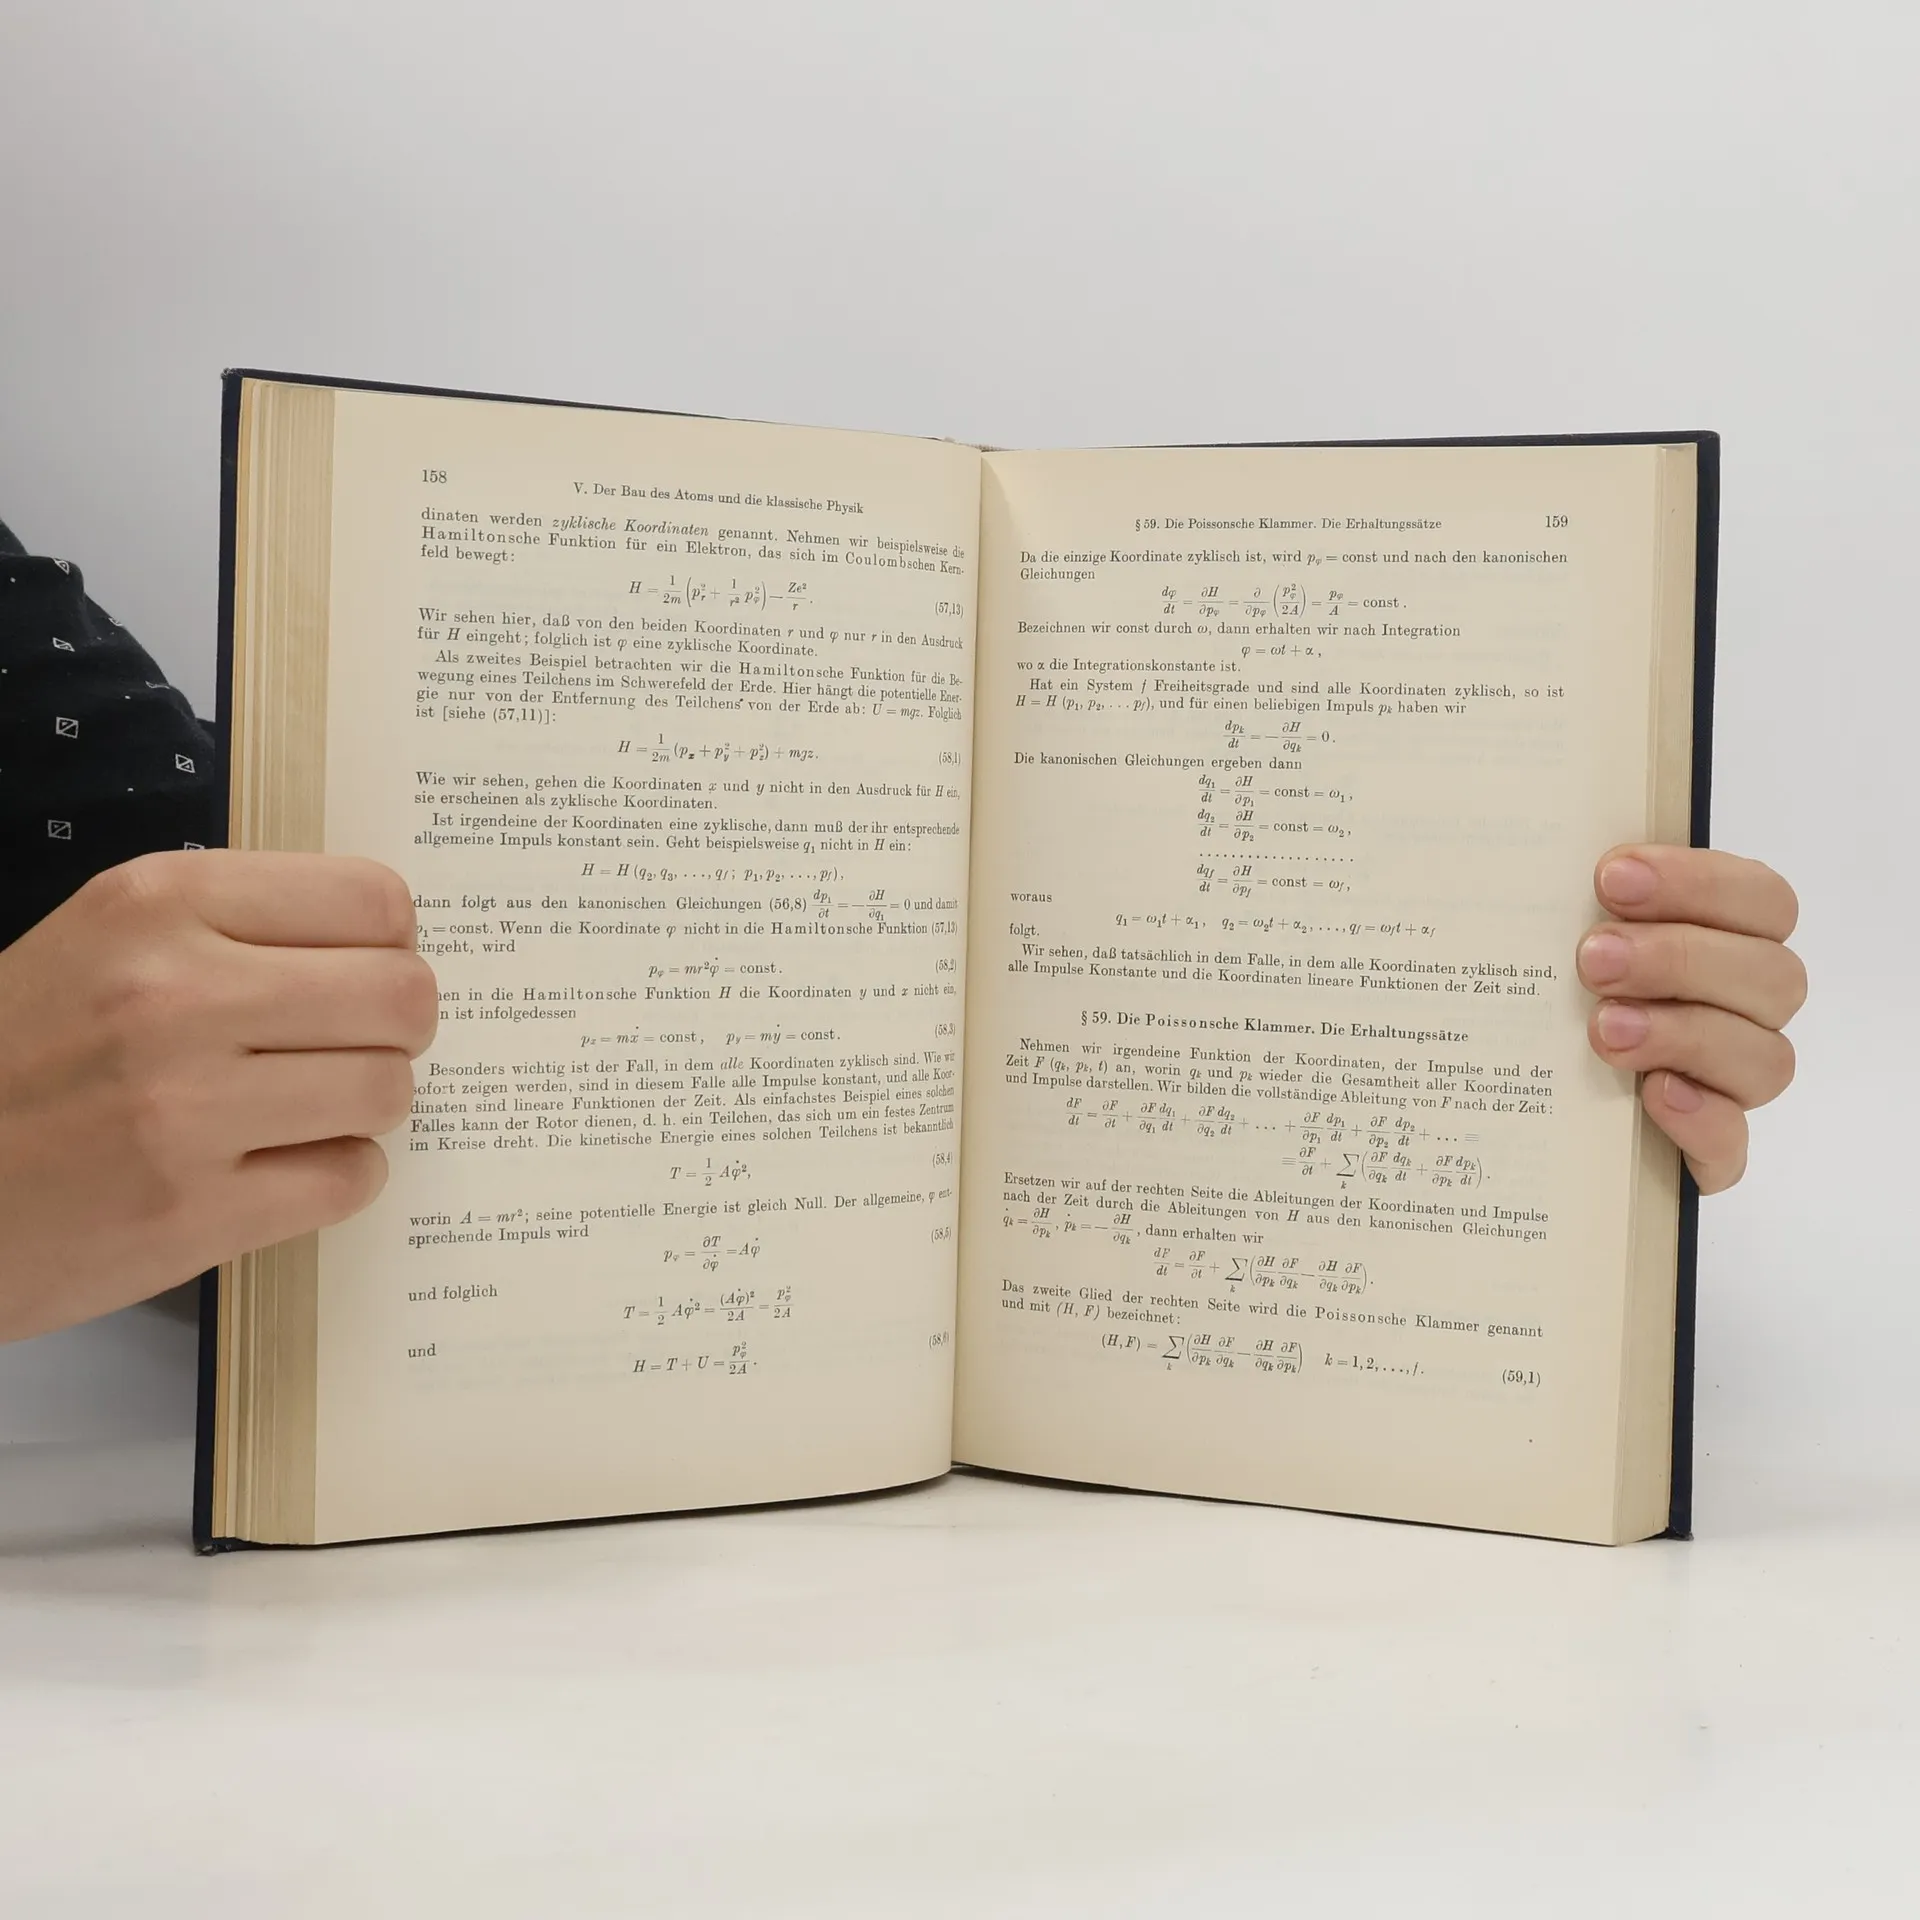 158
V. Der Bau des Atoms und die klassische Physik
dinaten werden zyklische Koordinaten genannt. Nehmen wir beispielsweise die
Hamiltonsche Funktion für ein Elektron, das sich im Coulombschen Kern-
feld bewegt:
H = 1/2m (p_r² + 1/r² p_φ²) − Ze²/r . (57,13)
Wir sehen hier, daß von den beiden Koordinaten r und φ nur r in den Ausdruck
für H eingeht; folglich ist φ eine zyklische Koordinate.
Als zweites Beispiel betrachten wir die Hamiltonsche Funktion für die Be-
wegung eines Teilchens im Schwerefeld der Erde. Hier hängt die potentielle Ener-
gie nur von der Entfernung des Teilchens von der Erde ab: U = mgz. Folglich
ist [siehe (57,11)]:
H = 1/2m (p_x + p_y² + p_z²) + mgz. (58,1)
Wie wir sehen, gehen die Koordinaten x und y nicht in den Ausdruck für H ein,
sie erscheinen als zyklische Koordinaten.
Ist irgendeine der Koordinaten eine zyklische, dann muß der ihr entsprechende
allgemeine Impuls konstant sein. Geht beispielsweise q₁ nicht in H ein:
H = H (q₂, q₃, . . ., q_f ; p₁, p₂, . . ., p_f),
dann folgt aus den kanonischen Gleichungen (56,8) dp₁/∂t = − ∂H/∂q₁ = 0 und damit
p₁ = const. Wenn die Koordinate φ nicht in die Hamiltonsche Funktion (57,13)
eingeht, wird
p_φ = mr²φ̇ = const. (58,2)
in die Hamiltonsche Funktion H die Koordinaten y und x nicht ein,
ist infolgedessen
p_x = mẋ = const , p_y = mẏ = const. (58,3)
Besonders wichtig ist der Fall, in dem alle Koordinaten zyklisch sind. Wie wir
sofort zeigen werden, sind in diesem Falle alle Impulse konstant, und alle Koor-
dinaten sind lineare Funktionen der Zeit. Als einfachstes Beispiel eines solchen
Falles kann der Rotor dienen, d. h. ein Teilchen, das sich um ein festes Zentrum
im Kreise dreht. Die kinetische Energie eines solchen Teilchens ist bekanntlich
T = 1/2 Aφ̇², (58,4)
worin A = mr²; seine potentielle Energie ist gleich Null. Der allgemeine, φ ent-
sprechende Impuls wird
p_φ = ∂T/∂φ̇ = Aφ̇ (58,5)
und folglich
T = 1/2 Aφ̇² = (Aφ̇)²/2A = p_φ²/2A
und
H = T + U = p_φ²/2A . (58,6)
§ 59. Die Poissonsche Klammer. Die Erhaltungssätze 159
Da die einzige Koordinate zyklisch ist, wird p_φ = const und nach den kanonischen
Gleichungen
dφ/dt = ∂H/∂p_φ = ∂/∂p_φ (p_φ²/2A) = p_φ/A = const .
Bezeichnen wir const durch ω, dann erhalten wir nach Integration
φ = ωt + α ,
wo α die Integrationskonstante ist.
Hat ein System f Freiheitsgrade und sind alle Koordinaten zyklisch, so ist
H = H (p₁, p₂, . . . p_f), und für einen beliebigen Impuls p_k haben wir
dp_k/dt = − ∂H/∂q_k = 0 .
Die kanonischen Gleichungen ergeben dann
dq₁/dt = ∂H/∂p₁ = const = ω₁ ,
dq₂/dt = ∂H/∂p₂ = const = ω₂ ,
. . . . . . . . . . . . . . . . . . .
dq_f/dt = ∂H/∂p_f = const = ω_f ,
woraus
q₁ = ω₁t + α₁ , q₂ = ω₂t + α₂ , . . ., q_f = ω_ft + α_f
folgt.
Wir sehen, daß tatsächlich in dem Falle, in dem alle Koordinaten zyklisch sind,
alle Impulse Konstante und die Koordinaten lineare Funktionen der Zeit sind.
§ 59. Die Poissonsche Klammer. Die Erhaltungssätze
Nehmen wir irgendeine Funktion der Koordinaten, der Impulse und der
Zeit F (q_k, p_k, t) an, worin q_k und p_k wieder die Gesamtheit aller Koordinaten
und Impulse darstellen. Wir bilden die vollständige Ableitung von F nach der Zeit:
dF/dt = ∂F/∂t + ∂F/∂q₁ dq₁/dt + ∂F/∂q₂ dq₂/dt + . . . + ∂F/∂p₁ dp₁/dt + ∂F/∂p₂ dp₂/dt + . . . ≡
≡ ∂F/∂t + ∑_k (∂F/∂q_k dq_k/dt + ∂F/∂p_k dp_k/dt) .
Ersetzen wir auf der rechten Seite die Ableitungen der Koordinaten und Impulse
nach der Zeit durch die Ableitungen von H aus den kanonischen Gleichungen
q̇_k = ∂H/∂p_k , ṗ_k = − ∂H/∂q_k , dann erhalten wir
dF/dt = ∂F/∂t + ∑_k (∂H/∂p_k ∂F/∂q_k − ∂H/∂q_k ∂F/∂p_k) .
Das zweite Glied der rechten Seite wird die Poissonsche Klammer genannt
und mit (H, F) bezeichnet:
(H, F) = ∑_k (∂H/∂p_k ∂F/∂q_k − ∂H/∂q_k ∂F/∂p_k) k = 1, 2, . . ., f . (59,1)